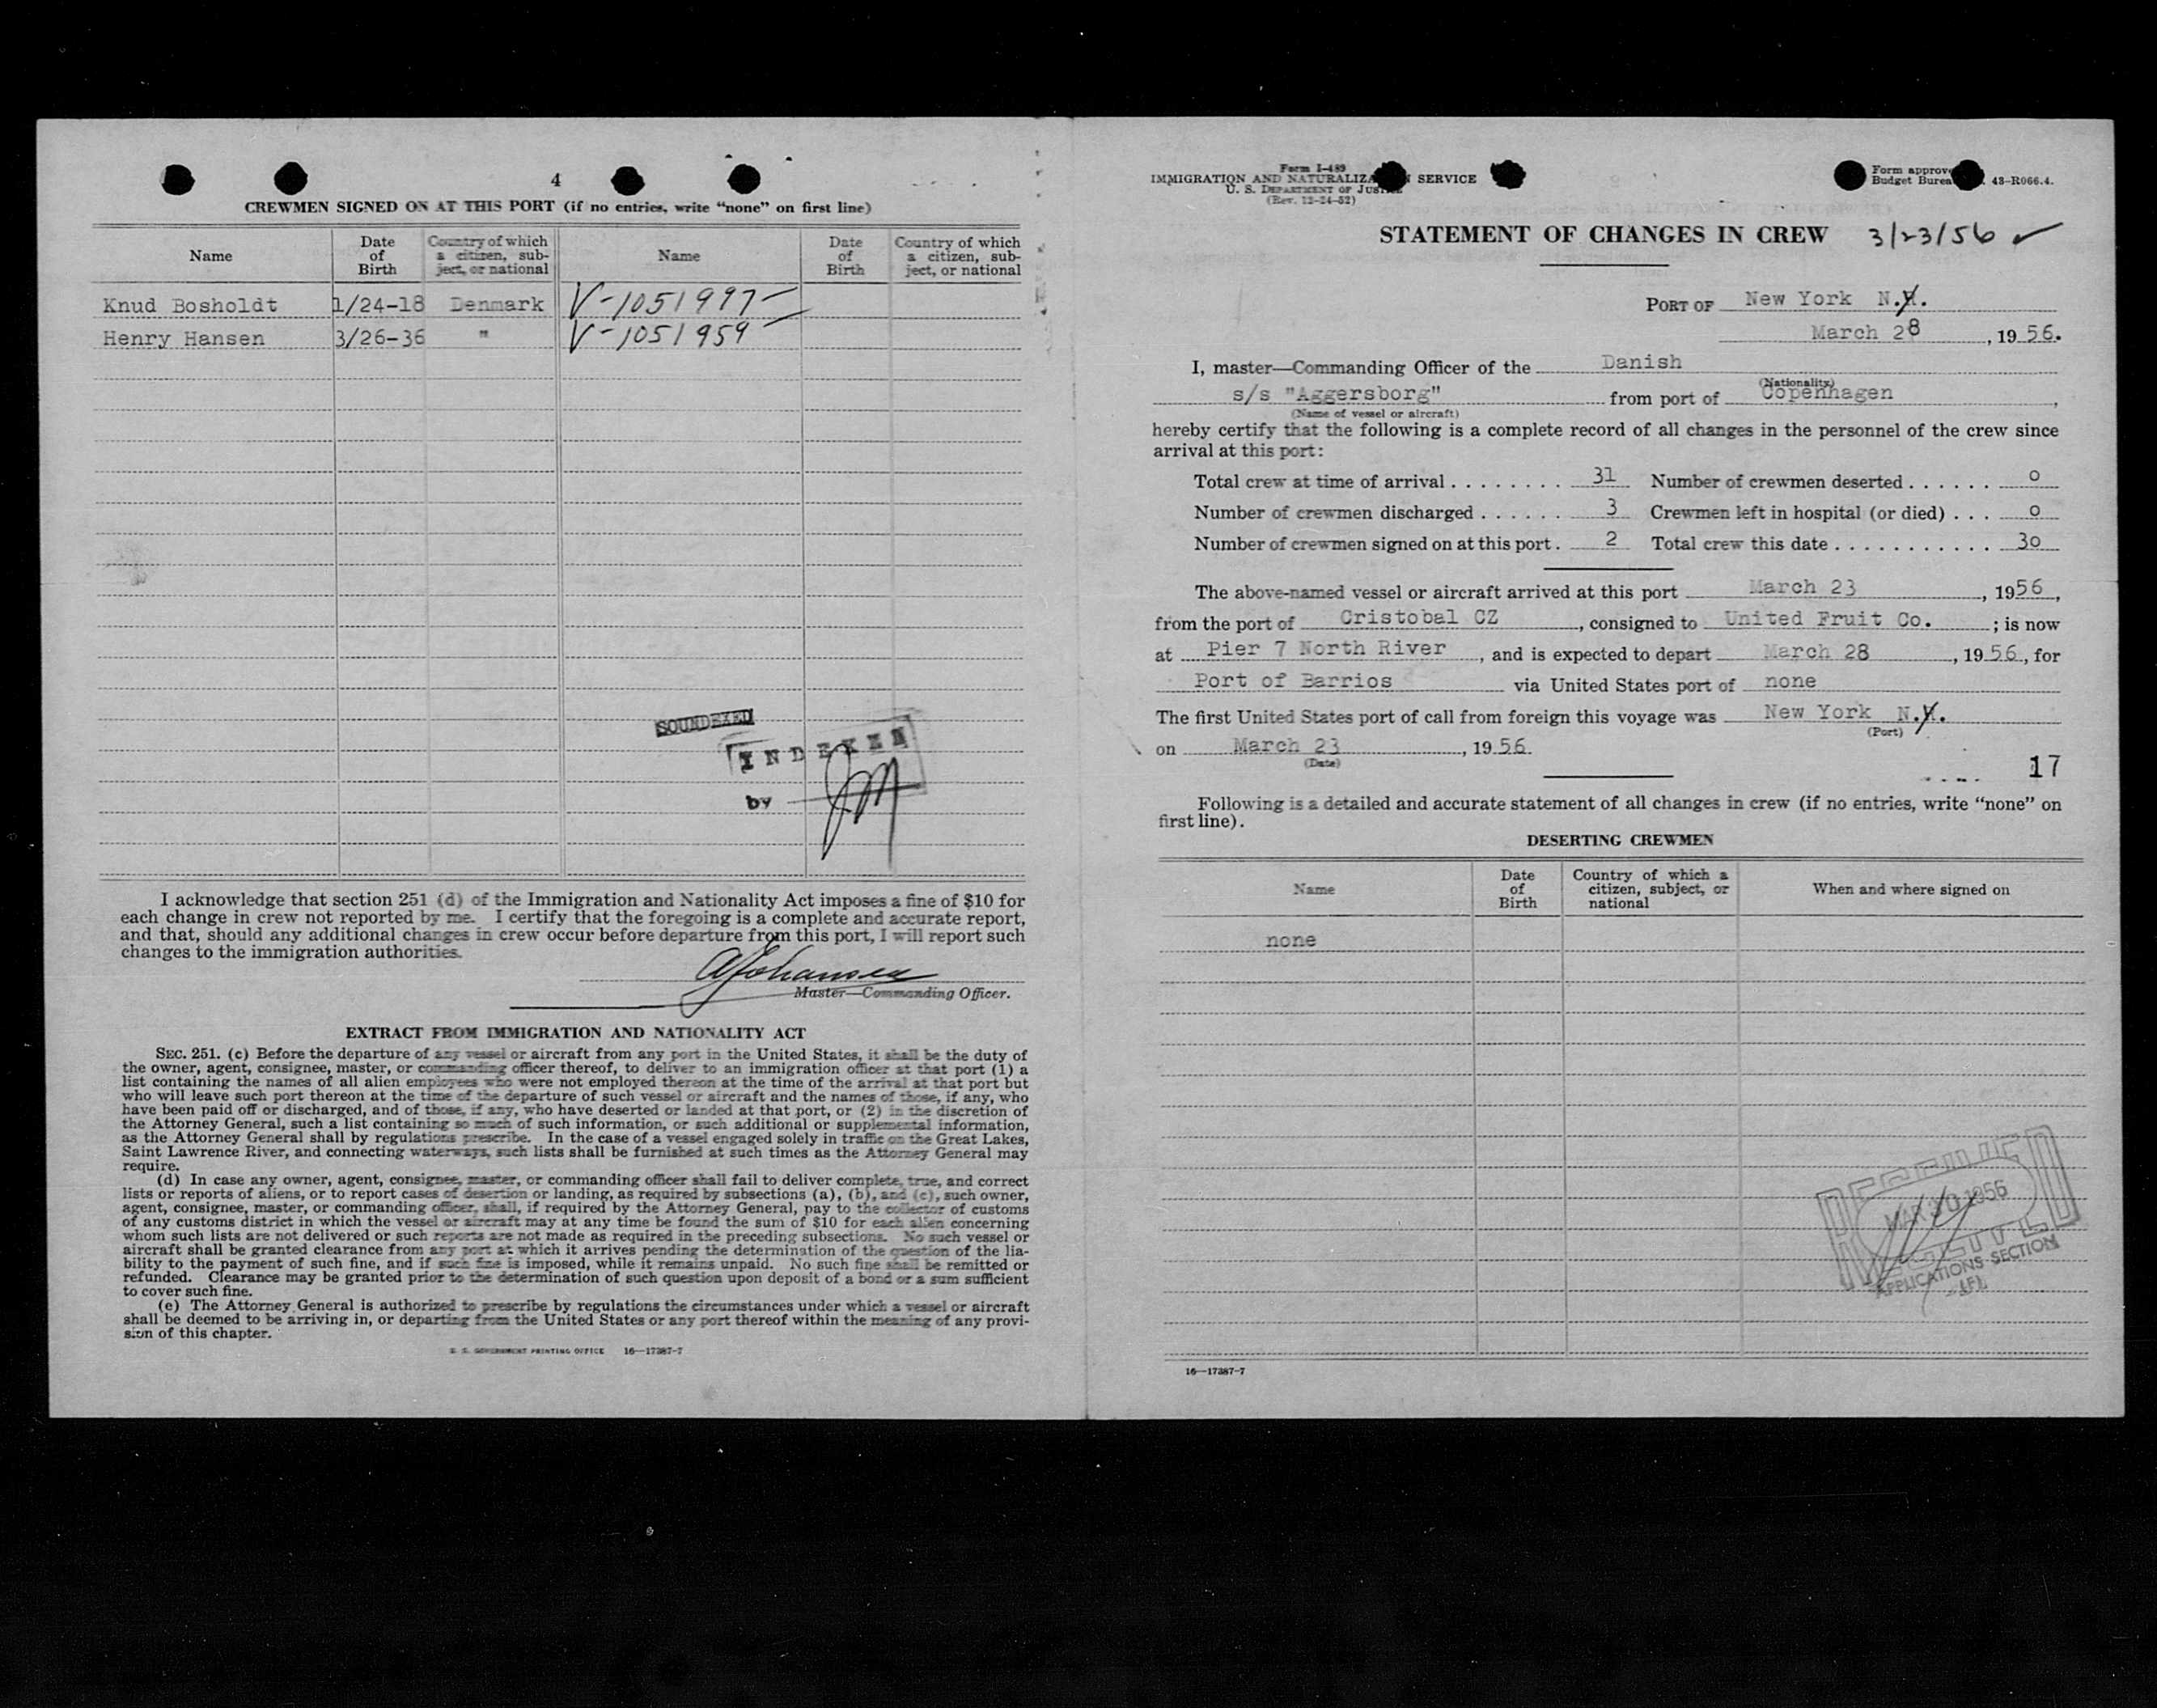 4
CREWMEN SIGNED ON AT THIS PORT (if no entries, write "none" on first line)
Name
Date of Birth
Country of which a citizen, subject, or national
Name
Date of Birth
Country of which a citizen, subject, or national
Knud Bosholdt 1/24-18 Denmark V-1051997
Henry Hansen 3/26-36 " V-1051959
SOUNDEXED
INDEXED
by JM
I acknowledge that section 251 (d) of the Immigration and Nationality Act imposes a fine of $10 for
each change in crew not reported by me. I certify that the foregoing is a complete and accurate report,
and that, should any additional changes in crew occur before departure from this port, I will report such
changes to the immigration authorities.
AJohansen
Master—Commanding Officer.
EXTRACT FROM IMMIGRATION AND NATIONALITY ACT
SEC. 251. (c) Before the departure of any vessel or aircraft from any port in the United States, it shall be the duty of
the owner, agent, consignee, master, or commanding officer thereof, to deliver to an immigration officer at that port (1) a
list containing the names of all alien employees who were not employed thereon at the time of the arrival at that port but
who will leave such port thereon at the time of the departure of such vessel or aircraft and the names of those, if any, who
have been paid off or discharged, and of those, if any, who have deserted or landed at that port, or (2) in the discretion of
the Attorney General, such a list containing so much of such information, or such additional or supplemental information,
as the Attorney General shall by regulations prescribe. In the case of a vessel engaged solely in traffic on the Great Lakes,
Saint Lawrence River, and connecting waterways, such lists shall be furnished at such times as the Attorney General may
require.
(d) In case any owner, agent, consignee, master, or commanding officer shall fail to deliver complete, true, and correct
lists or reports of aliens, or to report cases of desertion or landing, as required by subsections (a), (b), and (c), such owner,
agent, consignee, master, or commanding officer, shall, if required by the Attorney General, pay to the collector of customs
of any customs district in which the vessel or aircraft may at any time be found the sum of $10 for each alien concerning
whom such lists are not delivered or such reports are not made as required in the preceding subsections. No such vessel or
aircraft shall be granted clearance from any port at which it arrives pending the determination of the question of the lia-
bility to the payment of such fine, and if such fine is imposed, while it remains unpaid. No such fine shall be remitted or
refunded. Clearance may be granted prior to the determination of such question upon deposit of a bond or a sum sufficient
to cover such fine.
(e) The Attorney General is authorized to prescribe by regulations the circumstances under which a vessel or aircraft
shall be deemed to be arriving in, or departing from the United States or any port thereof within the meaning of any provi-
sion of this chapter.
U. S. GOVERNMENT PRINTING OFFICE 16—17387-7
Form I-489
IMMIGRATION AND NATURALIZATION SERVICE
U. S. DEPARTMENT OF JUSTICE
(Rev. 12-24-52)
Form approve
Budget Burea 43-R066.4.
STATEMENT OF CHANGES IN CREW 3/23/56 ✓
PORT OF New York N.Y.
March 28, 1956.
I, master—Commanding Officer of the Danish
(Nationality)
s/s "Aggersborg" from port of Copenhagen,
(Name of vessel or aircraft)
hereby certify that the following is a complete record of all changes in the personnel of the crew since
arrival at this port:
Total crew at time of arrival . . . . . . . . 31 Number of crewmen deserted . . . . . . 0
Number of crewmen discharged . . . . . . 3 Crewmen left in hospital (or died) . . . 0
Number of crewmen signed on at this port . 2 Total crew this date . . . . . . . . . . . . 30
The above-named vessel or aircraft arrived at this port March 23, 1956,
from the port of Cristobal CZ, consigned to United Fruit Co. ; is now
at Pier 7 North River, and is expected to depart March 28, 1956, for
Port of Barrios via United States port of none
The first United States port of call from foreign this voyage was New York N.Y.
(Port)
on March 23, 1956.
(Date)
17
Following is a detailed and accurate statement of all changes in crew (if no entries, write "none" on
first line).
DESERTING CREWMEN
Name
Date of Birth
Country of which a citizen, subject, or national
When and where signed on
none
RECEIVED
MAR 30 1956
RECEIVED
APPLICATIONS SECTION
(F)
16—17387-7